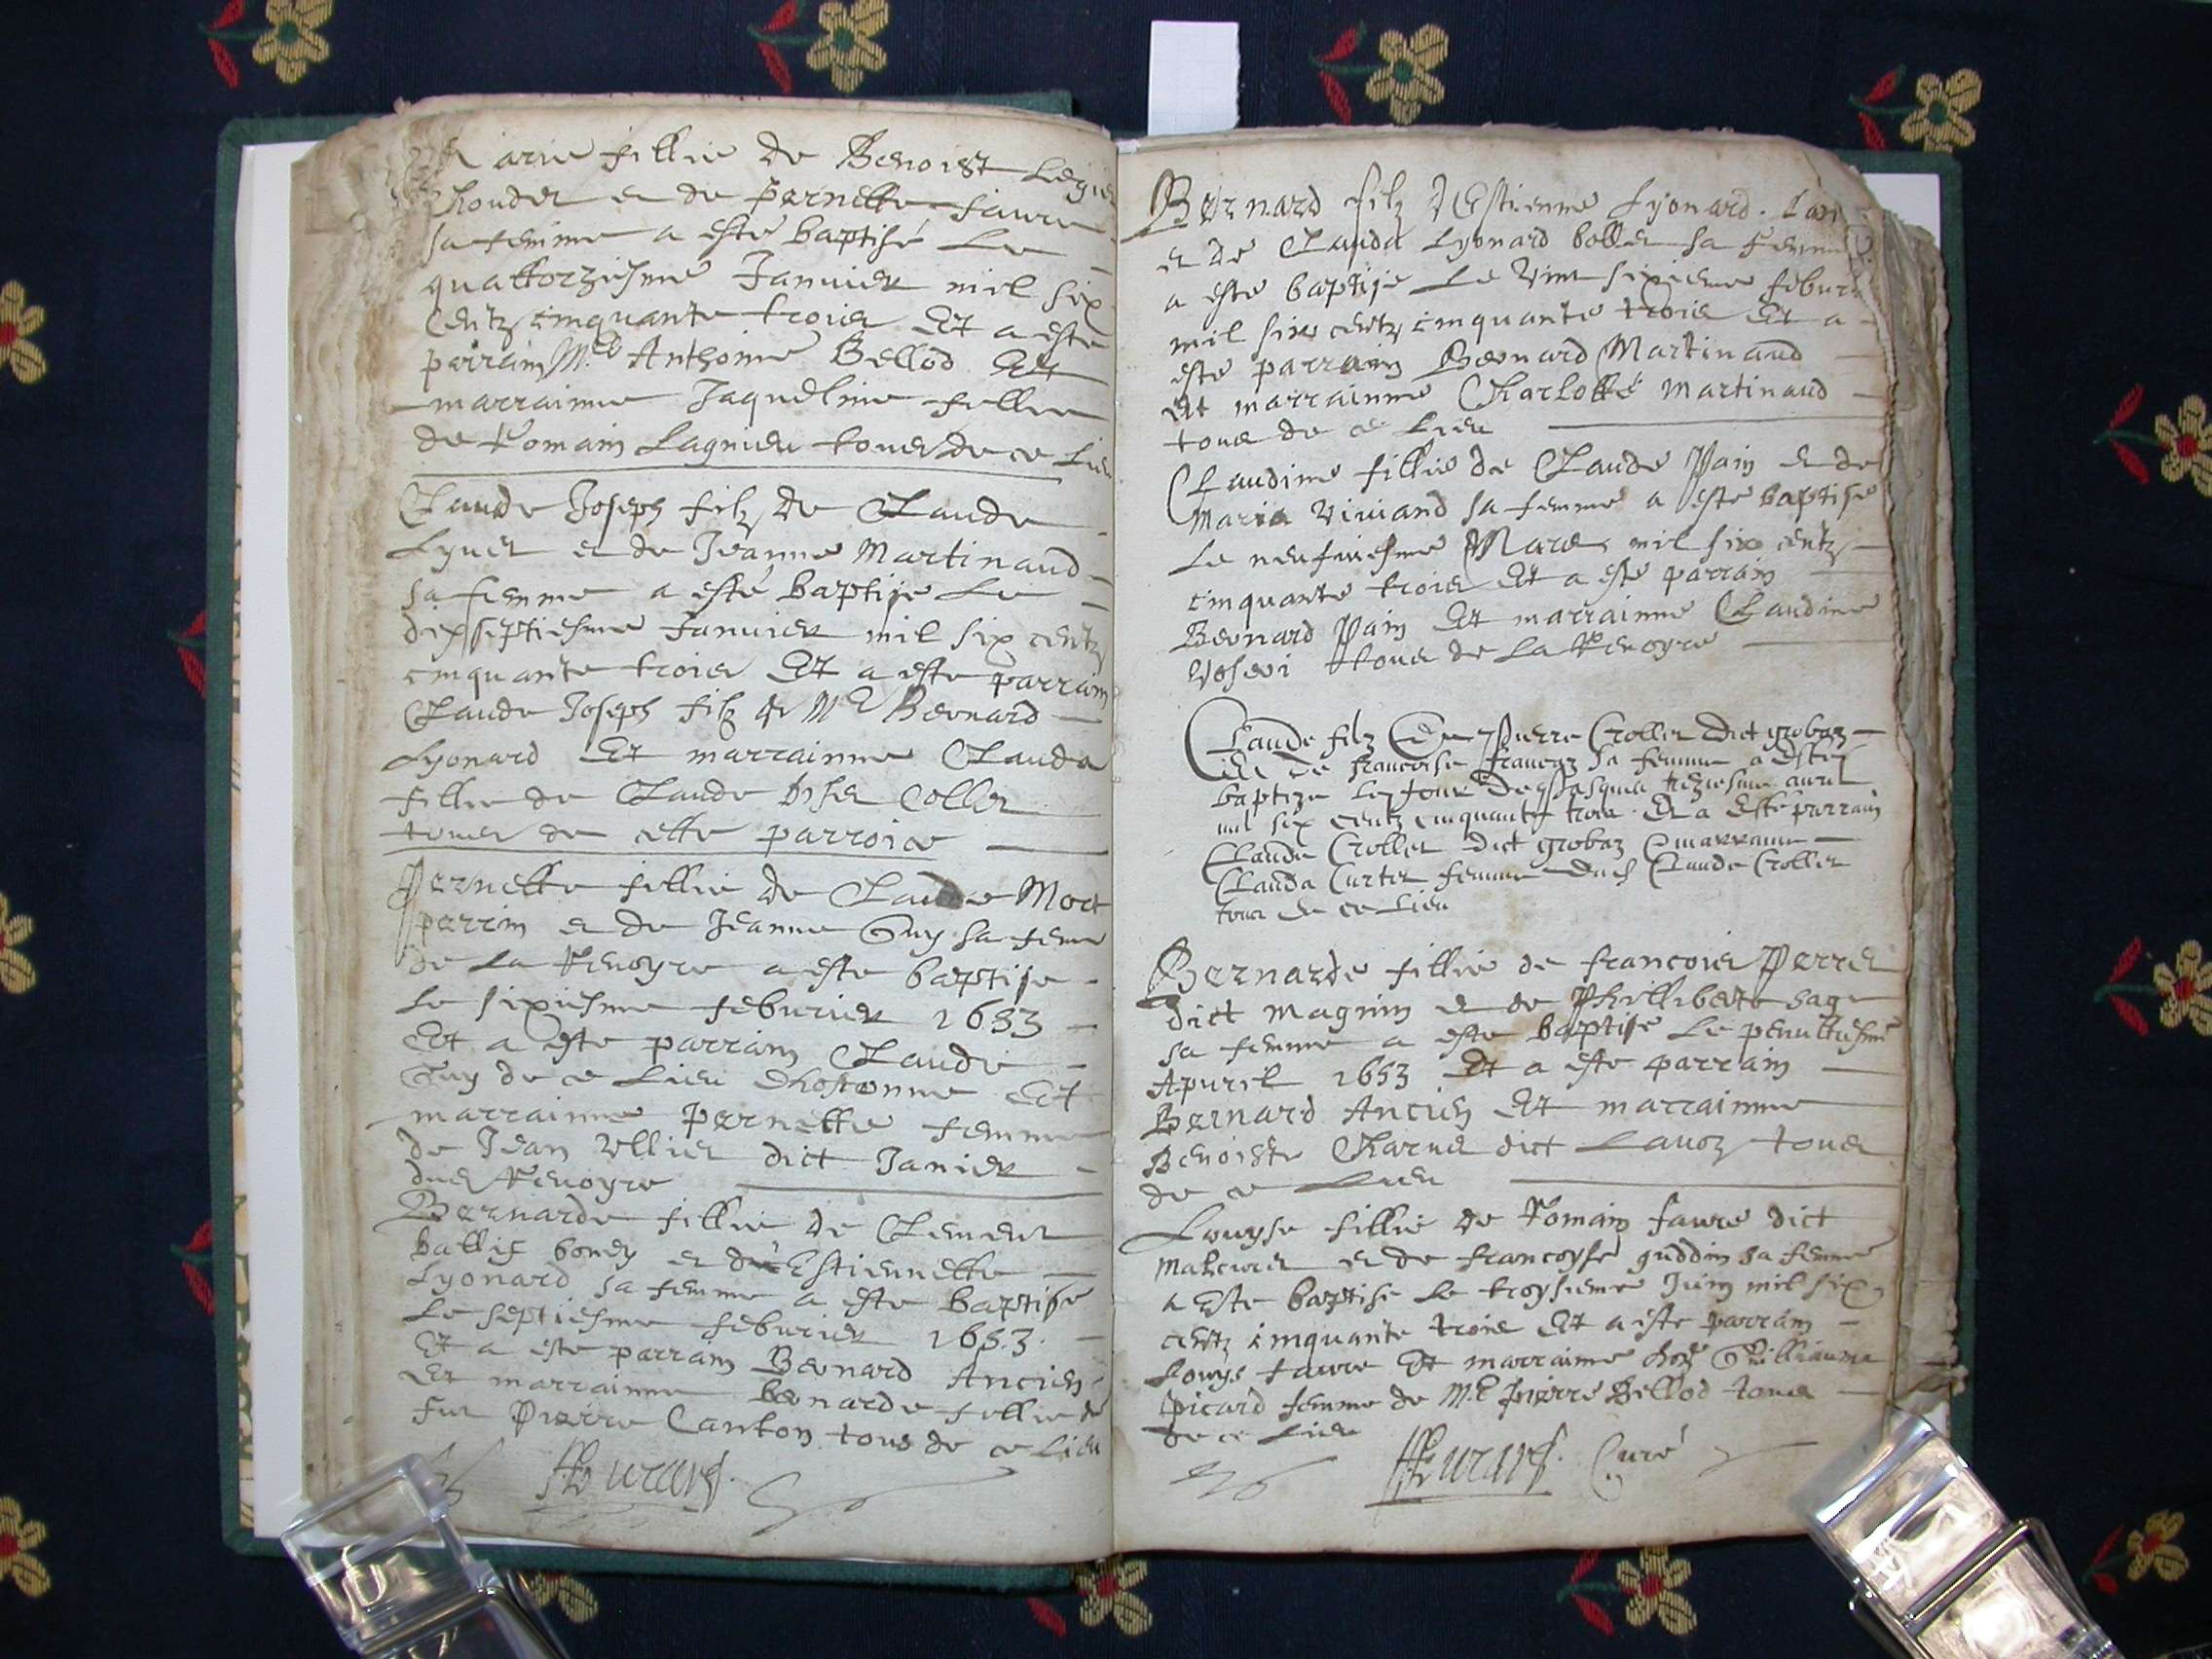 Marie fillie de Benoist Legier
Rondet et de Pernette faure
sa femme a esté baptisé Le
quattorziesme Januier mil six
Centz cinquante trois Et a este
parrain Mre Anthoine Bellod Et
marrainne Jaqueline fillie
de Romain Lagnieu tous de ce Lieu
Claude Joseph filz de Claude
Lyuet et de Jeanne Martinand
sa femme a esté baptise Le
dixseptiesme Januier mil six centz
cinquante trois Et a este parrain
Claude Joseph filz de Mre Bernard
Lyonard Et marrainne Clauda
fillie de Claude Collet
tous de cette parroice
Pernette fillie de Claude Mort
perrin et de Jeanne Guy sa feme
de La Reuoyre a este baptise
Le sixiesme feburier 1653
Et a este parrain Claude
Guy de ce Lieu Et
marrainne Pernette femme
de Jean Ullier dict Janier
Reuoyre
Bernarde fillie de Clement
ballif et de Estiennette
Lyonard sa femme a este baptise
Le septiesme feburier 1653.
Et a este parrain Bernard Ancien
Et marrainne bernarde fillie de
fut Pierre Canton tous de ce Lieu
Bernard filz d'Estienne Lyonard.
et de Clauda Lyonard bollet sa femme
a este baptise Le Vint sixieme febur
mil six centz cinquante trois Et a
este parrain Bernard Martinand
Et marrainne Charlotte Martinand
tous de ce Lieu
Claudine fillie de Claude Pain et de
Maria Viuiand sa femme a este baptise
Le neufuiesme Mars mil six centz
cinquante trois Et a este parrain
Bernard Pain Et marrainne Claudine
tous de La Reuoyre
Claude filz de Pierre Crollet dict grobaz
et de francoise francaz sa femme a esté
baptize le jour de pasques treziesme auril
mil six centz cinquante trois Et a esté parrain
Claude Crollet dict grobaz marraine
Clauda Curtet femme dud Claude Crollet
tous de ce Lieu
Bernarde fillie de francois Perret
dict magnin et de Philliberte sage
sa femme a este baptise Le penultiesme
Apuril 1653 Et a este parrain
Bernard Ancien Et marrainne
Benoiste Charue dict Lauoz tous
de ce Lieu
Louyse fillie de Romain faure dict
et de francoyse guddin sa femme
a Este baptise Le troysieme Juin mil six
centz cinquante trois Et a este parrain
Louys faure Et marraine Guilliauma
picard femme de Mre pierre Bellod tous
de ce Lieu
Curé